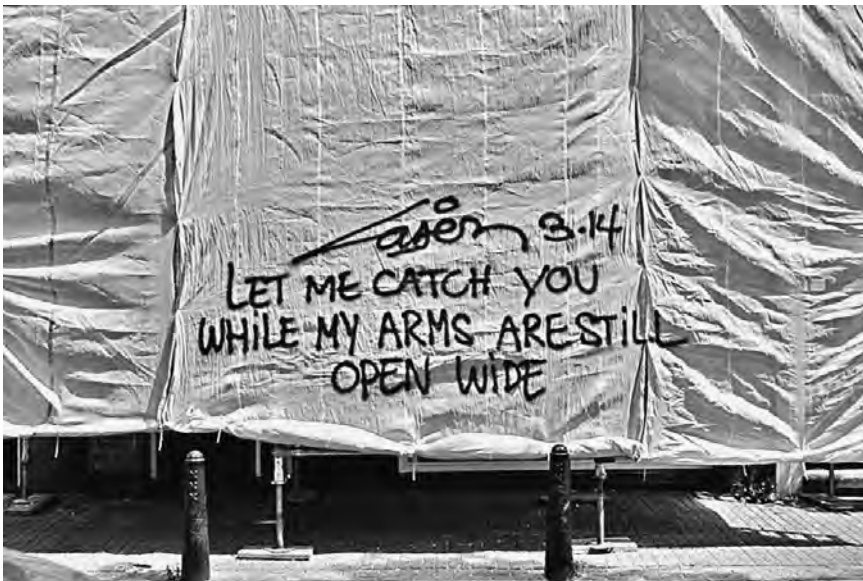 Laser 3.14
LET ME CATCH YOU
WHILE MY ARMS ARE STILL
OPEN WIDE